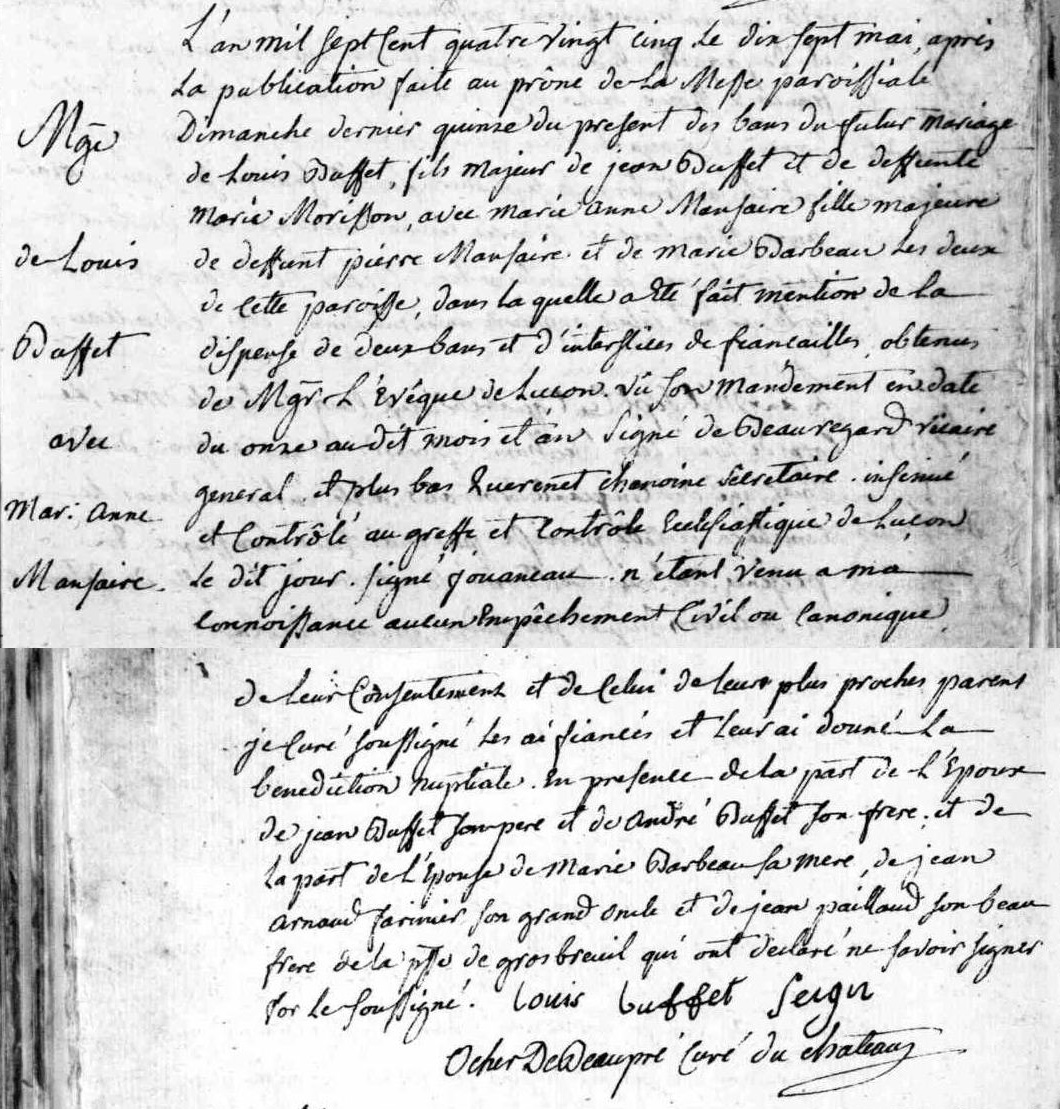 L'an mil sept Cent quatre vingt cinq le dix sept mai, après
La publication faite au prone de la Messe paroissiale
Mge
Dimanche dernier quinze du present des bans du futur mariage
de Louis Buffet, fils majeur de jean Buffet et de deffunte
Marie Morisson, avec marie anne Mansaire fille majeure
de Louis
de deffunt pierre Mansaire et de marie Barbeau les deux
de Cette paroisse, dans la quelle a été fait mention de la
Buffet
dispense de deux bans et d'interstices de fiancailles, obtenus
de Mgr L'Evéque de Luçon. vû son mandement en date
avec
du onze au dit mois et an signé de Beauregard vicaire
general. et plus bas Querenet chanoine secretaire. insinué
Mar: anne
et Contrôlé au greffe et Contrôle Ecclesiastique de Luçon
Mansaire.
le dit jour. signé jouaneau. n'étant venu a ma
connoissance aucun Empêchement Civil ou Canonique
de leur Consentement et de Celui de leurs plus proches parent
je Curé soussigné les ai fiancés et leur ai donné la
benediction Nuptiale. En presence de la part de L'Epoux
de jean Buffet son pere et de andré Buffet son frere, et de
la part de L'Epouse de Marie Barbeau sa mere, de jean
arnaud farinier son grand oncle et de jean paillaud son beau
frere de la psse de grosbreuil qui ont declaré ne savoir signer
for le soussigné. louis buffet
Ocher De Beaupré Curé du chateau